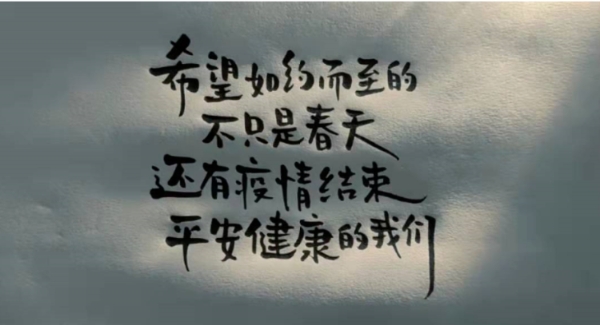 希望如约而至的
不只是春天
还有疫情结束
平安健康的我们